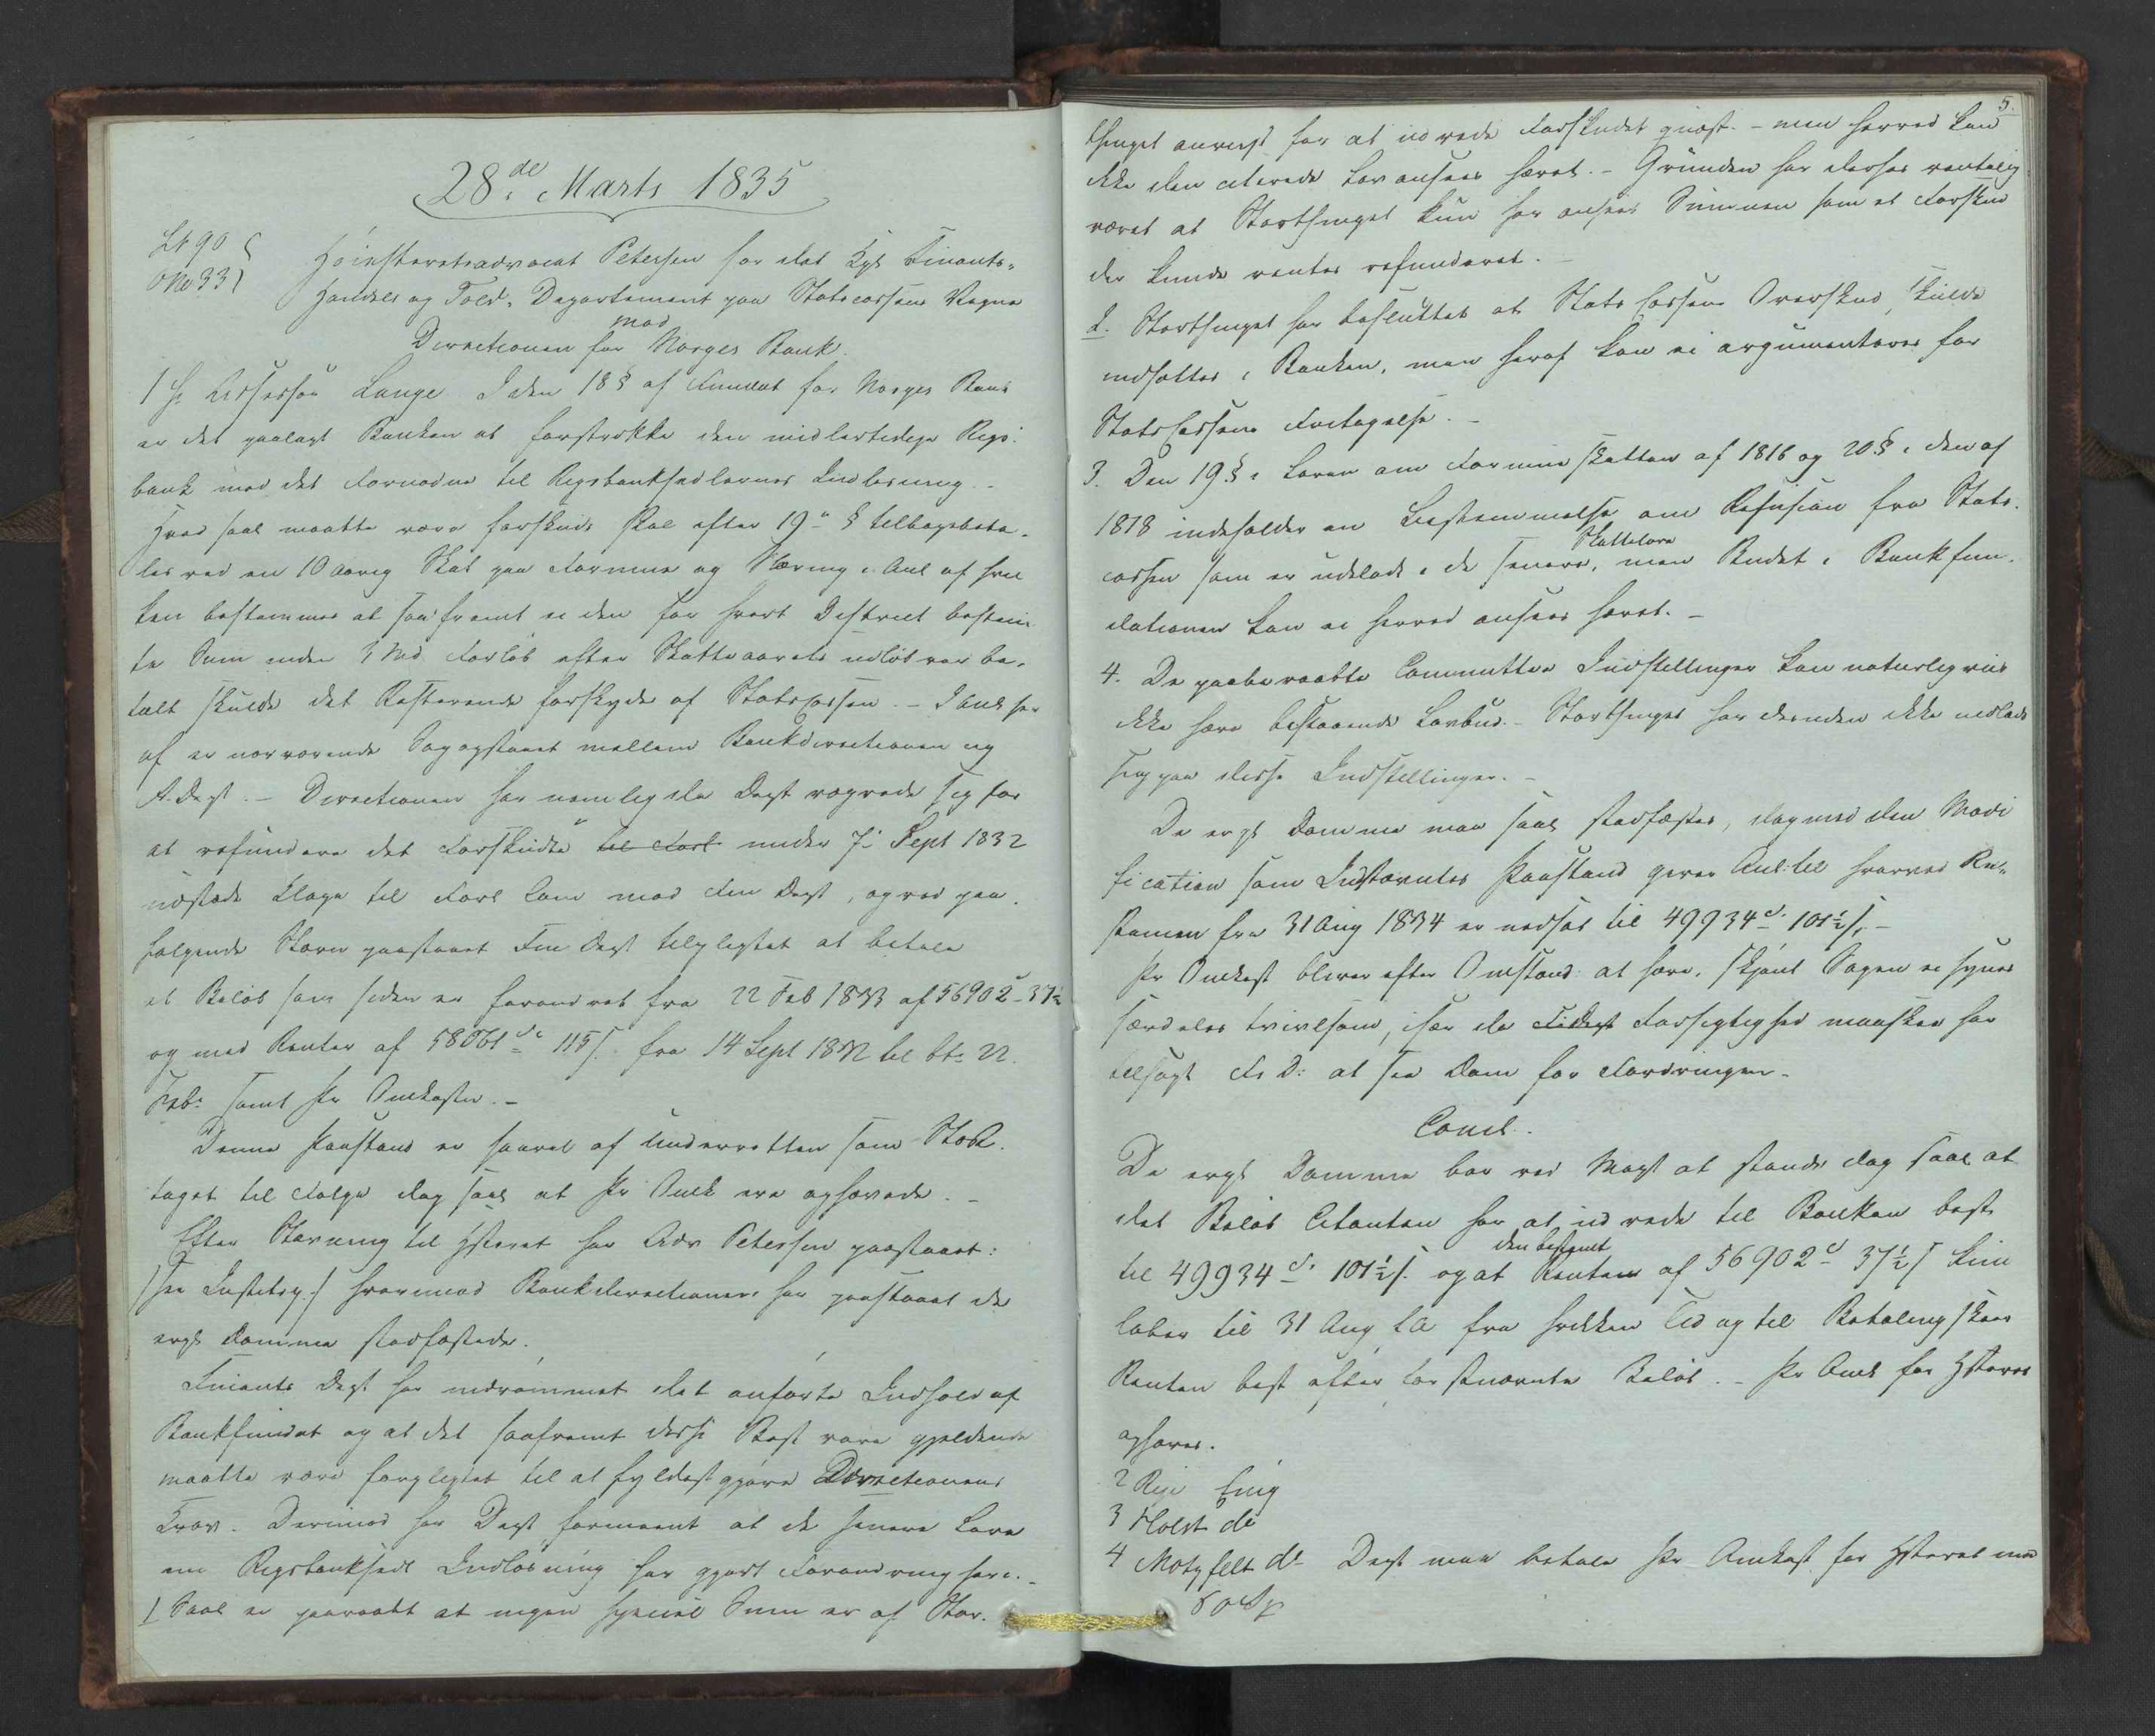 28de Marts 1835
L№ 90
No 33
Høiesteretsadvocat Petersen for det Kgl Finants-
Handels og Told-Departement paa Statscassens Vegne
mod
Directionen for Norges Bank.
1 Hr Assessor Lange I den 18 § af Fundat for Norges Bank
er det paalagt Banken at forstrække den midlertidige Rigs-
bank med det Fornødne til Rigsbanksedlernes Indløsning.-
Hvad saal. maatte være forskudt skal efter 19de § tilbagebeta-
les ved en 10 aarig Skat paa Formue og Næring i Anl af hvil
ken bestemmes at saafremt ei den for hvert District bestem
te Sum inden 3 Md Forløb efter Skatteaarets Udløb var be-
talt skulde det Resterende forskydes af Statscassen. - I Anl her
af er nærværende Sag opstaaet mellem Bankdirectionen og
F. Dept. - Directionen har nemlig da Dept vægrede sig for
at refundere det Forskudte til Forl under 7de Sept 1832
udstædt Klage til Forl Com mod Fin Dept, og ved paa-
følgende Stævn paastaaet Fin Dept tilpligtet at betale
et Beløb som siden er forandret fra 22 Feb 1833 af 56902-37½
og med Renter af 58061 115 s. fra 14 Sept 1832 til bte 22.
Feb. samt Pr Omkoster.-
Denne Paastand er saavel af Underretten som StOR.
taget til Følge dog saal at Pr Omk ere ophævede.-
Efter Stævning til Hsteret har Adv Petersen paastaaet:
/: see Indstilg :/ hvorimod Bankdirectionen har paastaaet de
ergl Domme stadfæstede.
Finants Dept har indrømmet det anførte Indhold af
Bankfundat og at det saafremt disse Best vare gjældende
maatte være forpligtet til at fyldestgjøre Directionens
Krav. Derimod har Dept formeent at de senere Love
om Rigsbanksedl Indløsning har gjort Forandring heri.-
1 Saal er paaraabt at ingen speciel Sum er af Stor-
5.
thinget anviist for at udrede Forskudet quæst. - men herved kan
ikke den citerede Lov ansees hævet. - Grunden har derhos rentelig
været at Storthinget kun har anseet Summen som et Forskud
der kunde ventes refunderet.-
2. Storthinget har besluttet at Stats Cassens Overskud skulde
indsættes i Banken, men heraf kan ei argumenteres for
StatsCassens Fritagelse.-
3. Den 19 § i Loven om Formueskatten af 1816 og 20 § i den af
1818 indeholder en Bestemmelse om Refusion fra Stats-
cassen som er udeladt i de senere Skattelove, men Budet i Bankfun-
dationen kan ei herved ansees hævet.-
4. De paaberaabte Committee Indstillinger kan naturligviis
ikke hæve bestaaende Lovbud. - Storthinget har desuden ikke indladt
sig paa disse Indstillinger.-
De ergl Domme maa saal stadfæstes, dog med den Modi
fication som Indstævntes Paastand giver Anl. til hvorved Re-
stancen fra 31 Aug 1834 er nedsat til 49934 101½ s.-
Pr Omkost bliver efter Omstænd: at hæve, skjønt Sagen ei synes
særdeles tvivlsom, især da Fi Dept Forsigtighed maaskee har
tilsagt Fi D: at see Dom for Fordringen.
Concl.
De ergl Domme bør ved Magt at stande dog saal at
det Beløb Citanten har at udrede til Banken best
til 49934 101½ s. og at den bestemt Renten af 56902 37½ s kun
løber til 31 Aug f.A. fra hvilken Tid og til Betaling skeer
Renten best efter førstnævnte Beløb. - Pr Omk for Hsteret
ophæves.
2 Rije Enig
3 Holst do
4 Motzfelt do Dept maa betale Pr Omkost for Hsteret med